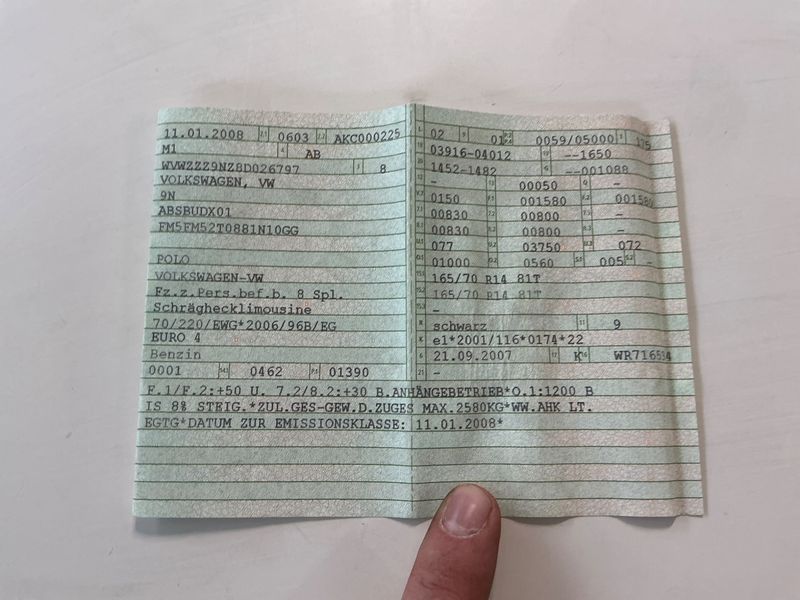 11.01.2008 2.1 0603 2.2 AKC000225
M1 4 AB
WVWZZZ9NZ8D026797 3 8
VOLKSWAGEN, VW
9N
ABSBUDX01
FM5FM52T0881N10GG
POLO
VOLKSWAGEN-VW
Fz.z.Pers.bef.b. 8 Spl.
Schräghecklimousine
70/220/EWG*2006/96B/EG
EURO 4
Benzin
0001 14.1 0462 P.1 01390
L 02 9 01 P.2 P.4 0059/05000 T 175
18 03916-04012 19 --1650
20 1452-1482 G --001088
- 13 00050 Q -
0150 F.1 001580 F.2 001580
00830 7.2 00800 7.3 -
00830 8.2 00800 8.3 -
077 U.2 03750 U.3 072
01000 O.2 0560 S.1 005 S.2 -
15.1 165/70 R14 81T
15.2 165/70 R14 81T
15.3 -
R schwarz 11 9
K e1*2001/116*0174*22
6 21.09.2007 17 K 16
21 -
F.1/F.2:+50 U. 7.2/8.2:+30 B.ANHÄNGEBETRIEB*O.1:1200 B
IS 8% STEIG.*ZUL.GES-GEW.D.ZUGES MAX.2580KG*WW.AHK LT.
EGTG*DATUM ZUR EMISSIONSKLASSE: 11.01.2008*